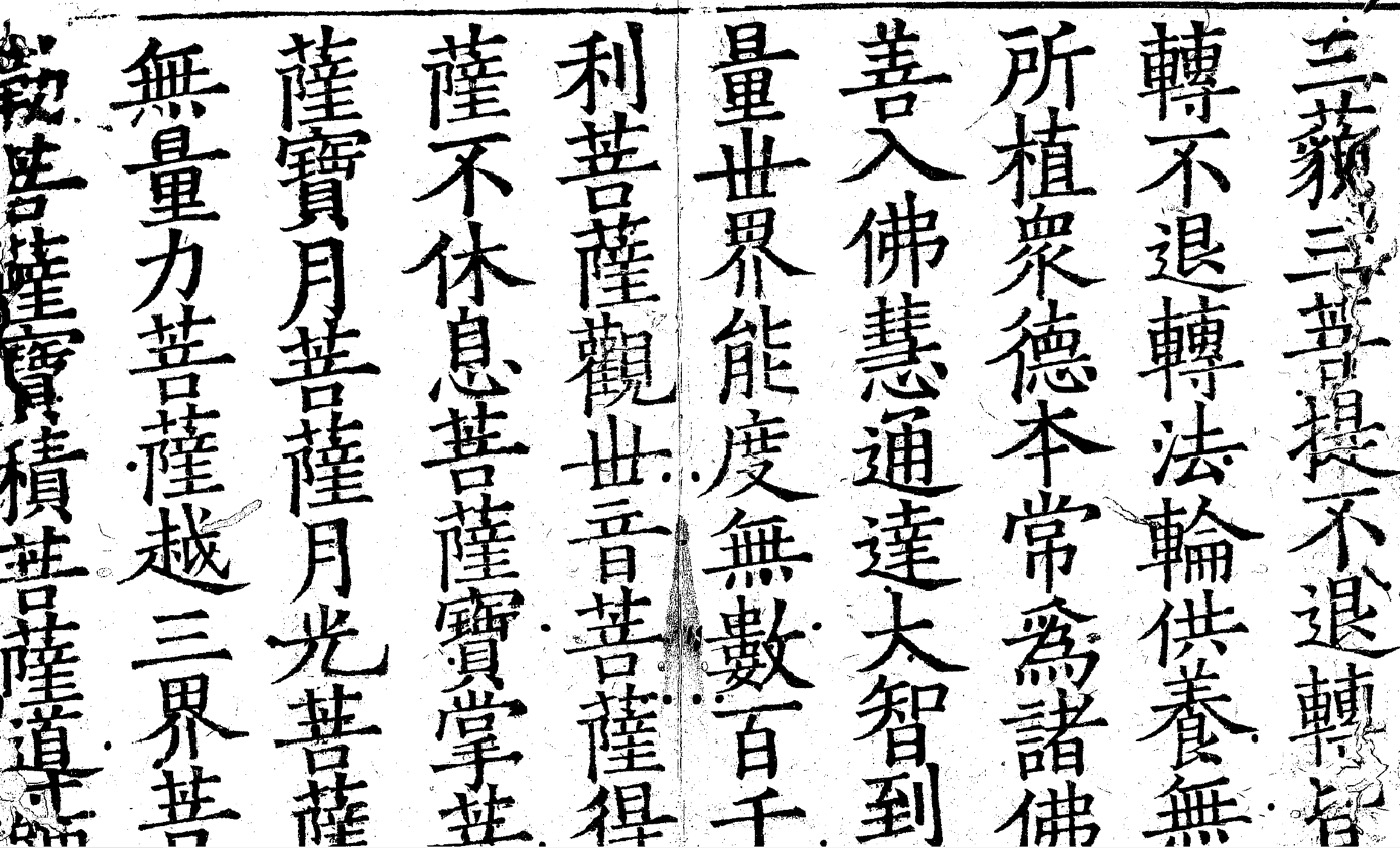 三藐三菩提不退轉皆
轉不退轉法輪供養無
所植衆德本常爲諸佛
善入佛慧通達大智到
量世界能度無數百千
利菩薩觀世音菩薩得
薩不休息菩薩寶掌菩
薩寶月菩薩月光菩薩
無量力菩薩越三界菩
菩薩寶積菩薩導師